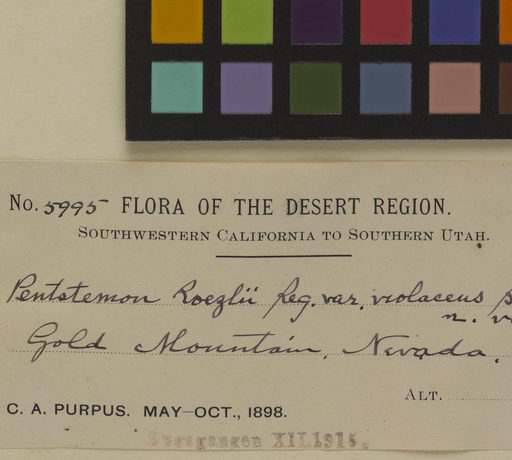 No. 5995 FLORA OF THE DESERT REGION.
SOUTHWESTERN CALIFORNIA TO SOUTHERN UTAH.
Pentstemon Roezlii Reg. var. violaceus
n. v
Gold Mountain, Nevada.
ALT.
C. A. PURPUS. MAY–OCT., 1898.
XII.1915.